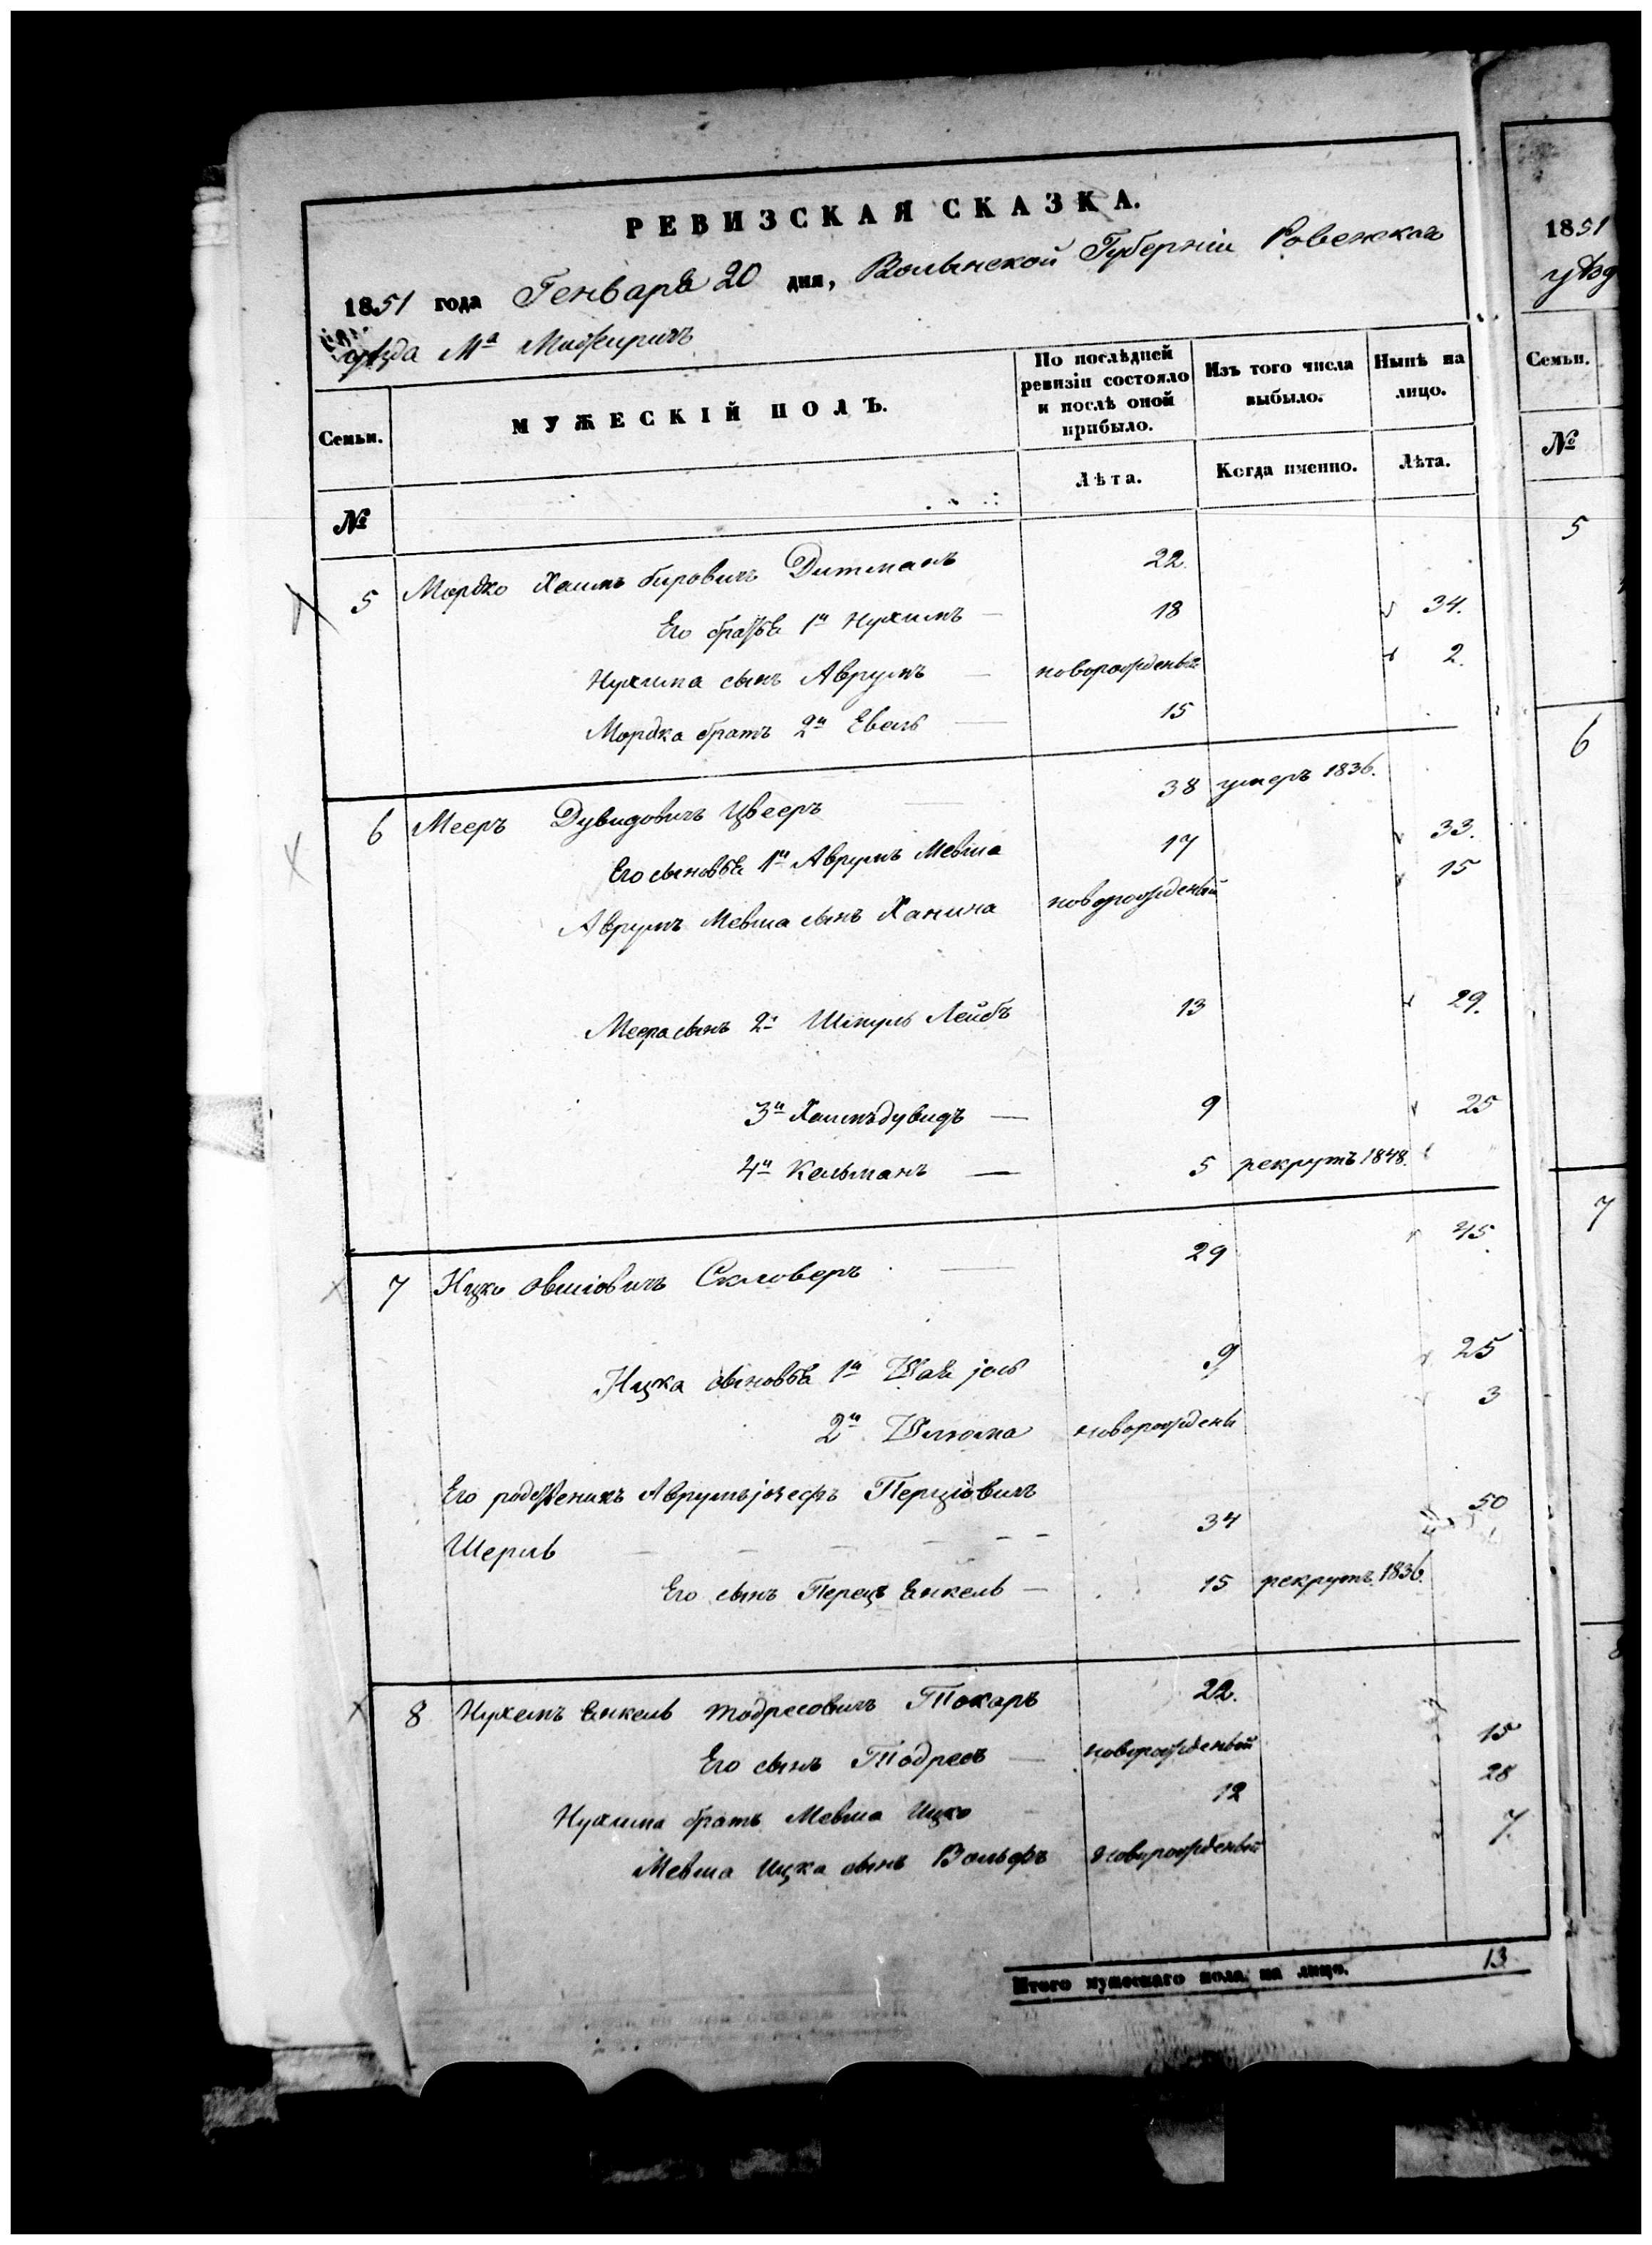 РЕВИЗСКАЯ СКАЗКА.
1851 года Генваря 20 дня, Волынской Губерніи Ровенскаго
уѣзда Мª Межирич
Семьи.
МУЖЕСКІЙ ПОЛЪ.
По послѣдней ревизіи состояло и послѣ оной прибыло.
Изъ того числа выбыло.
Нынѣ на лицо.
№
Лѣта.
Когда именно.
Лѣта.
5 Мордко Хаимъ Берковичъ Дитманъ 22.
Его братья 1й Нухимъ — 18 34.
Нухима сынъ Аврумъ — новорожденый 2.
Мордка братъ 2й Евель — 15
6 Мееръ Дувидовичъ Цвееръ — 38 умеръ 1836.
Его сыновья 1й Аврумъ Мевша 17 33.
Аврумъ Мевша сынъ Ханина новорожденый 15
Меера сынъ 2й Шмуль Лейбъ 13 29.
3й Хаимъ дувидъ — 9 25
4й Кельманъ — 5 рекрутъ 1848.
7 Ицко Овшіовичъ Скловеръ — 29 45.
Ицка сыновья 1й 9 25
2й Шлюма новорожден 3
Его родственикъ Аврумъ јозефъ Перціовичъ
Шериль 34 50
Его сынъ Перецъ Енкель — 15 рекрутъ 1836.
8 Нухемъ Енкель тодресовичъ Токаръ 22.
Его сынъ Тодресъ — новорожденый 15
Нухима братъ Мевша Ицко 12 28
Мевша Ицка сынъ Вольфъ новорожденый 7.
Итого мужескаго пола на лицо. 13
1851
уѣзд
Семьи.
№
5
6
7
8